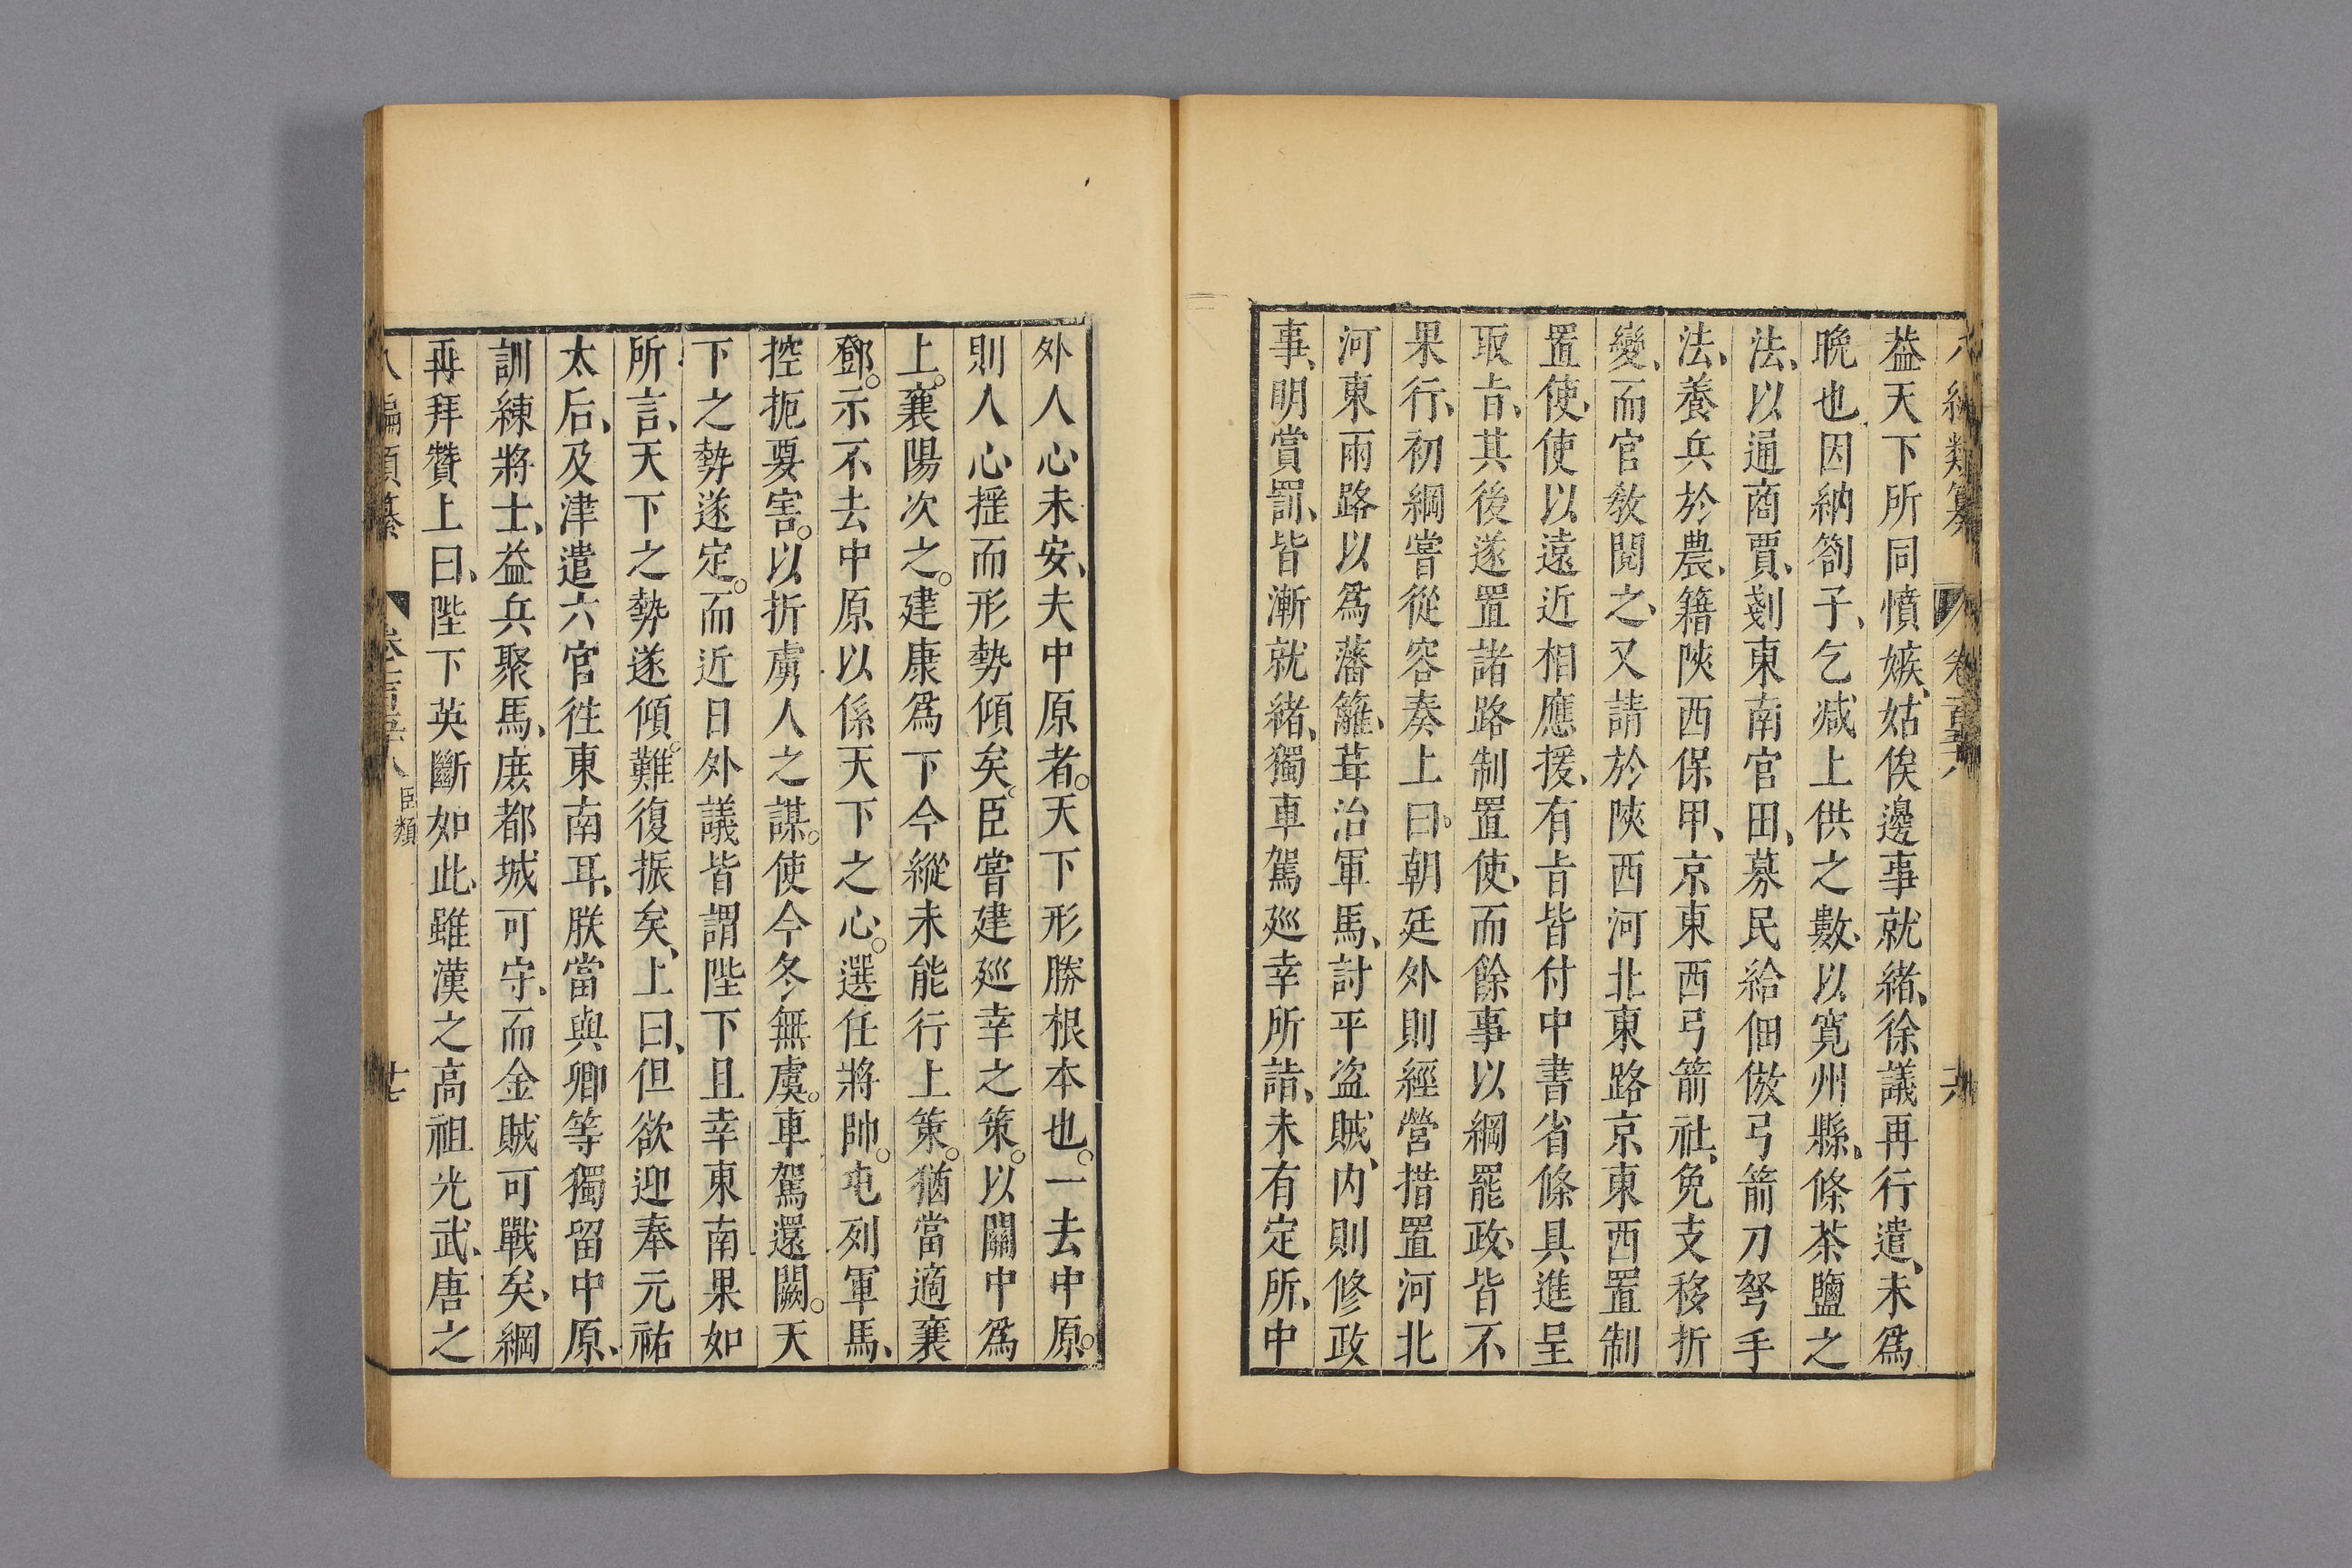 八編類纂 卷一百五十八 六
葢天下所同憤嫉、姑俟邊事就緒、徐議再行遣、未爲
晩也、因納劄子、乞減上供之數、以寬州縣、條茶鹽之
法、以通商賈、剗東南官田、募民給佃倣弓箭刀弩手
法、養兵於農、籍陝西保甲、京東西弓箭社、免支移折
變、而官敎閱之、又請於陝西河北東路京東西置制
置使、使以遠近相應援、有㫖皆付中書省條具進呈
取㫖、其後遂置諸路制置使、而餘事以綱罷政、皆不
果行、初綱嘗從容奏上曰。朝廷外則經營措置河北
河東兩路以爲藩籬、葺治軍馬、討平盗賊、内則修政
事、明賞罰、皆漸就緒、獨車駕廵幸所詣、未有定所、中
外人心未安、夫中原者。天下形勝根本也。一去中原。
則人心揺而形勢傾矣。臣嘗建廵幸之策。以關中爲
上。襄陽次之。建康爲下今縱未能行上策。猶當適襄
鄧。示不去中原以係天下之心。選任將帥。屯列軍馬、
控扼要害。以折虜人之謀。使今冬無虞。車駕還闕。天
下之勢遂定。而近日外議皆謂陛下且幸東南果如
所言、天下之勢遂傾。難復振矣、上曰、但欲迎奉元祐
太后、及津遣六宮徃東南耳、朕當與卿等獨留中原、
訓練將士、益兵聚馬、庻都城可守、而金賊可戰矣、綱
再拜贊上曰、陛下英斷如此、雖漢之高祖光武、唐之
八編類纂 卷一百五十八 臣類 廿七